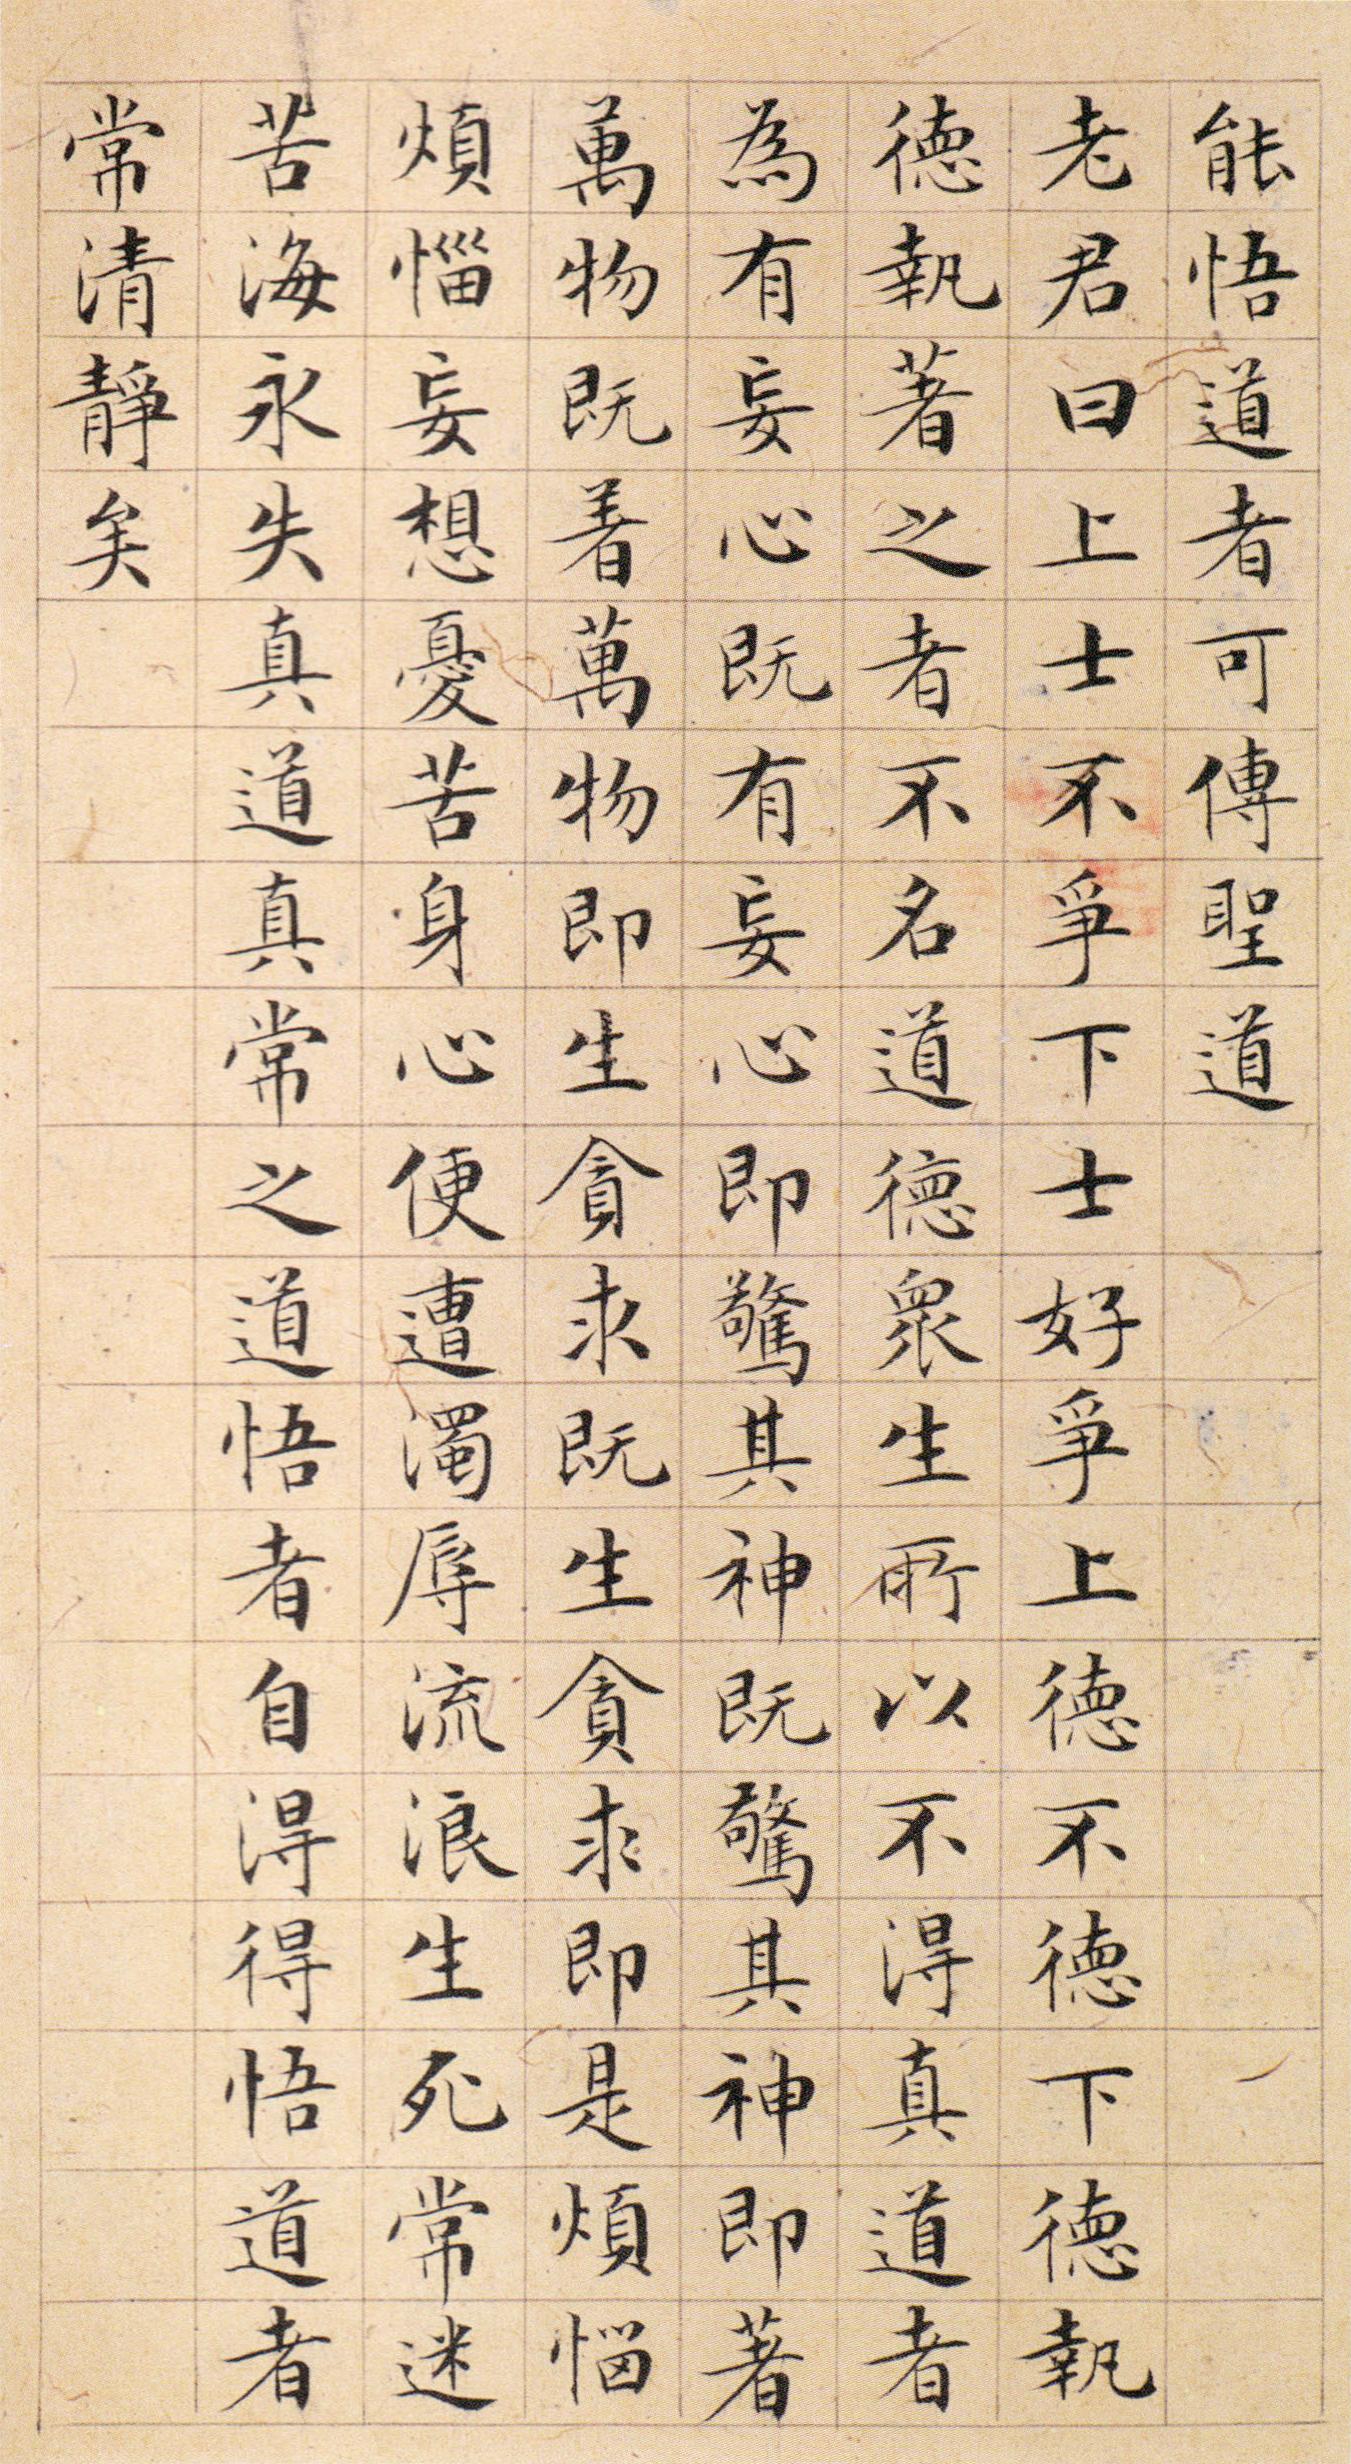 能悟道者可傳聖道
老君曰上士不爭下士好爭上德不德下德執
德執著之者不名道德眾生所以不得真道者
為有妄心既有妄心即驚其神既驚其神即著
萬物既着萬物即生貪求既生貪求即是煩惱
煩惱妄想憂苦身心便遭濁辱流浪生死常迷
苦海永失真道真常之道悟者自得得悟道者
常清靜矣